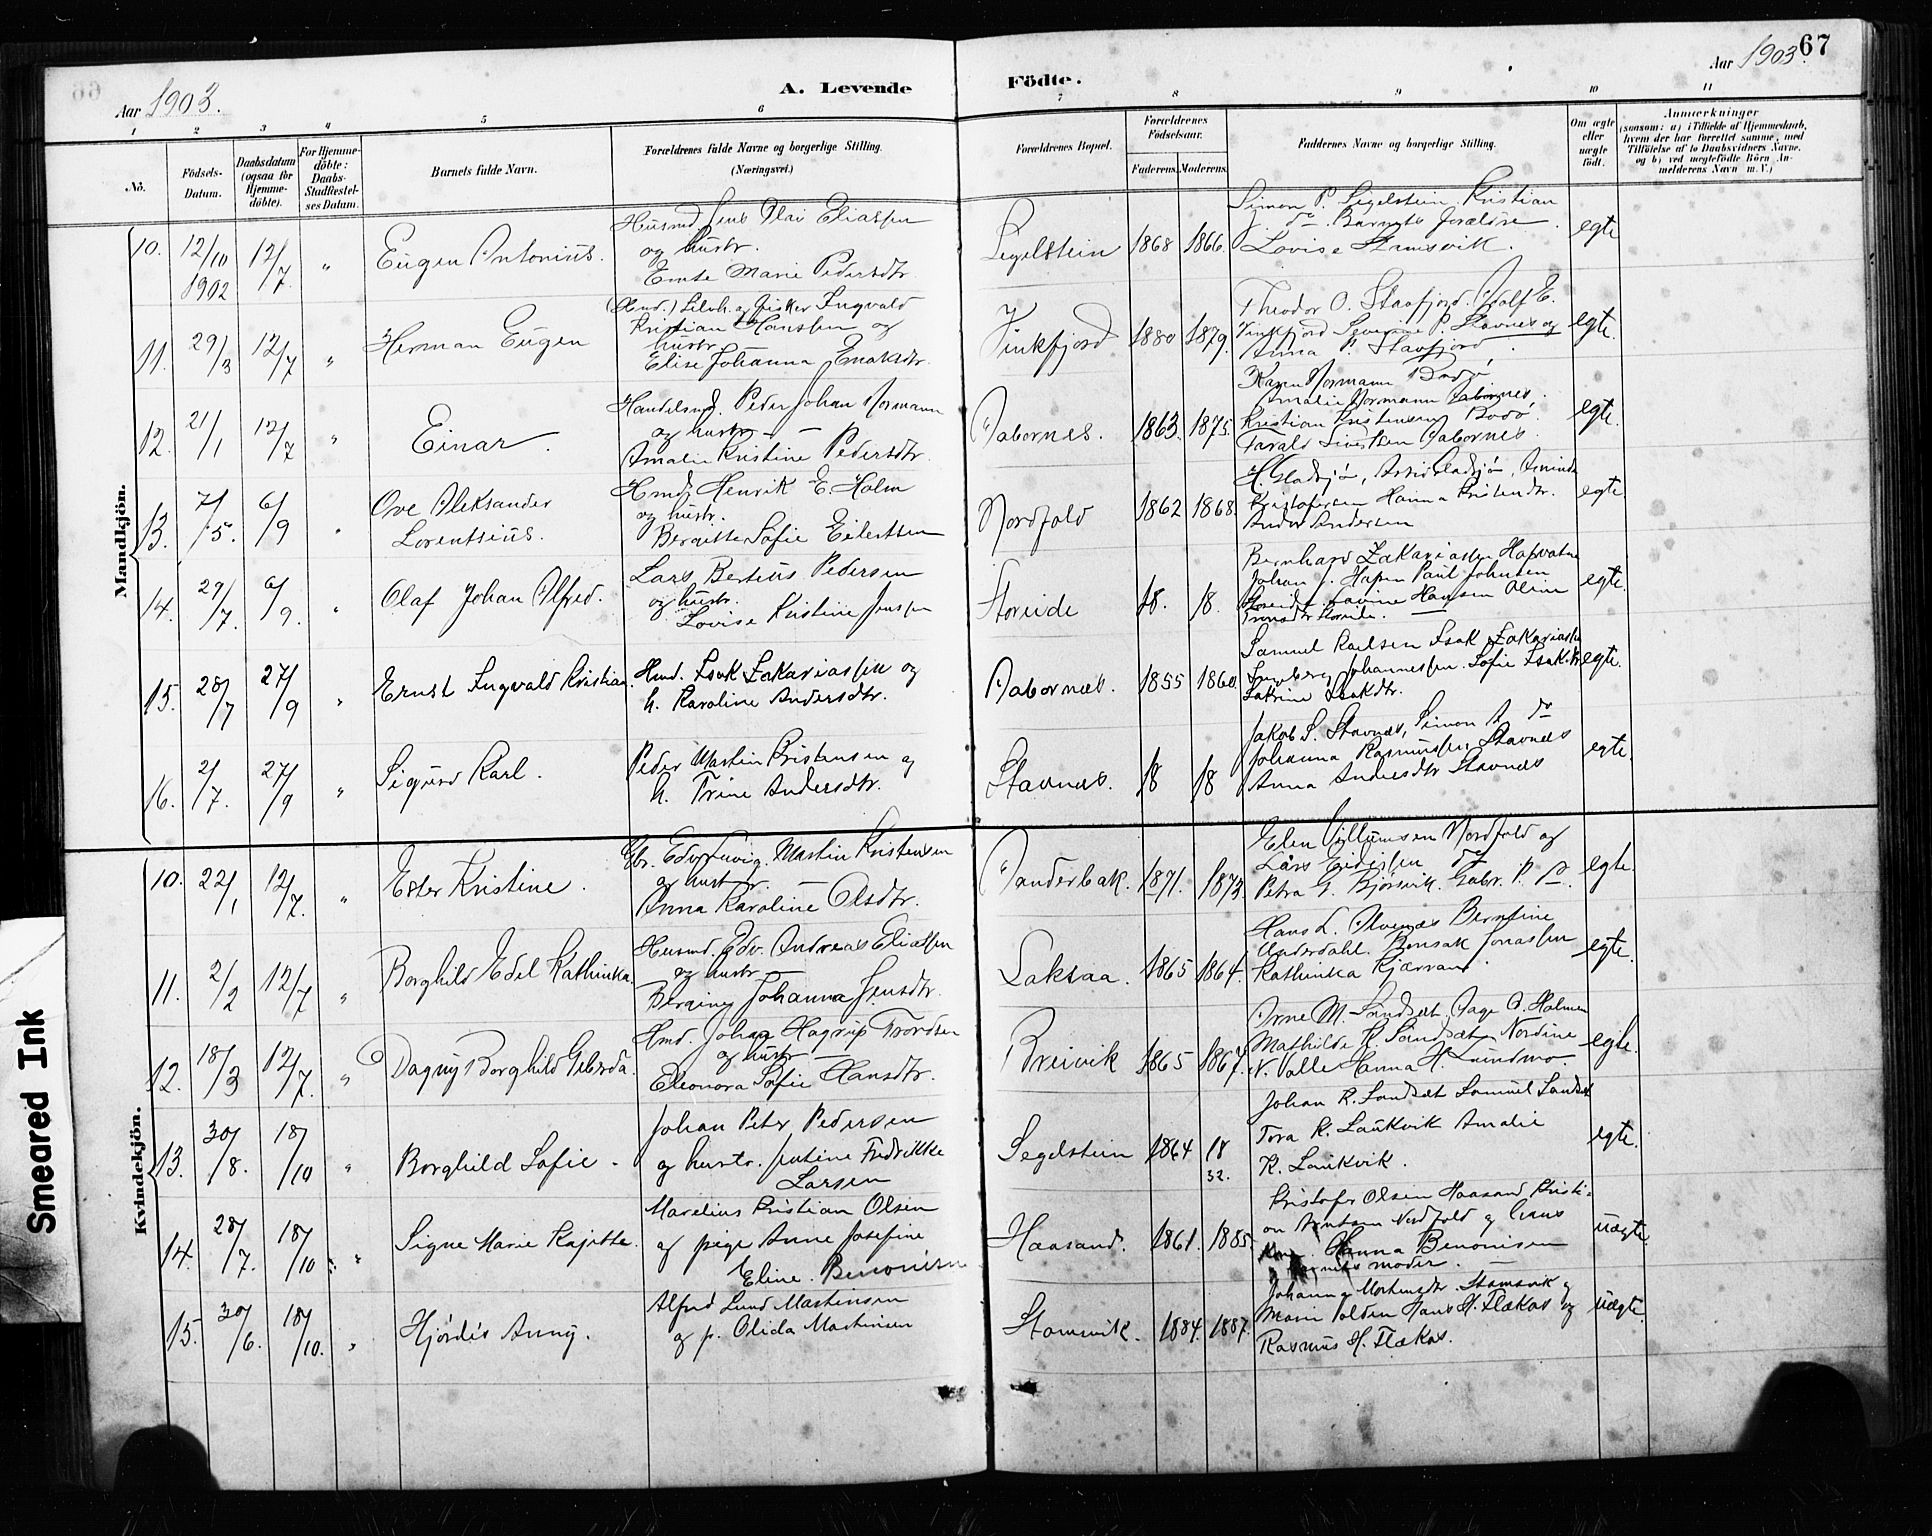 66
Aar 1903.
A. Levende
Födte.
Aar 1903.
67
1 2 3 4 5 6 7 8 9 10 11
Nô.
Födsels-Datum.
Daabsdatum (ogsaa for Hjemme-döbte).
For Hjemme-döbte: Daabs-Stadfæstel-ses Datum.
Barnets fulde Navn.
Forældrenes fulde Navne og borgerlige Stilling.
(Næringsvei.)
Forældrenes Bopæl.
Forældrenes Födselsaar.
Faderens. Moderens.
Faddernes Navne og borgerlige Stilling.
Om ægte eller uægte födt.
Anmærkninger
(saasom: a) i Tilfælde af Hjemmedaab,
hvem der har forrettet samme, med
Tilföielse af to Daabsvidners Navne,
og b) ved uægtefödte Börn, An-
melderens Navn m. V.)
Mandkjön.
10. 12/10 1902 12/7 " Eugen Antonius.
Husmd Jens Olai Eliassen
og hustr.
Emte Marie Pedersdtr.
Segelstein 1868 1866.
Simon P. Segelstein Kristian
J. do. Barnets Forældre
Lovise Stamsvik.
egte
11. 29/3 12/7 " Herman Eugen
Ingvald
Kristian Hanssen og
hustr
Elise Johanna Enoksdtr.
Vinkfjord 1880 1879.
Theodor O. Stavfjord. Adolf E.
Vinkfjord Severine P. Stavnes og
Anna P. Stavfjord.
egte.
12. 21/1 12/7 " Einar.
Handelsmd. Peder Johan Normann
og hustr
Amalie Kristine Pedersdtr.
Aabornes. 1863. 1875.
Karen Normann Bodø
Amalie Normann Aabornes.
Kristian Kristensen Bodø
Tarald Sivertsen Aabornes.
egte.
13. 7/5. 6/9 " Ove Aleksander
Lorentsius.
Hmd. Henrik E. Holm
og hustr.
Bergitte Sofie Eilertsen
Nordfold 1862 1868.
Kristofersen Hanna Kristendtr.
Andor Andersen
egte
14. 29/7. 6/9. " Olaf Johan Alfred.
Lars Berteus Pedersen
og hustr.
Lovise Kristine Jenssen
Storeide 18. 18.
Bernhard Zakariassen
Johan J. Paul Johnsen
Hansen Oline
egte.
15. 28/7 27/9 " Ernst Ingvald Kristian.
Hmd. Isak Zakariassen og
h. Karoline Andersdtr.
Aabornes. 1855 1860.
Samuel Karlsen Isak Zakariassen
Ingeberg Johannessen. Sofie Isaksdtr
Katrine Isakdtr.
egte.
16. 2/7. 27/9 " Sigurd Karl.
Peder Martin Kristensen og
h. Trine Andersdtr.
Stavnes. 18 18
Jakob S. Stavnes, Simon A. do
Johanna Rasmussen, Stavnes
Anna Andersdtr Stavnes
egte.
Kvindekjön.
10. 22/1 12/7. " Ester Kristine.
Gbr. Edv. Ludvig Martin Kristensen
og hustr
Anna Karoline Olsdtr.
Aanderbak. 1871. 1873.
Elen Villumsen Nordfold og
Lars do
Petra G. Bjørsvik. Gabr. P. do.
egte.
11. 2/2 12/7 " Borghild Edel Kathinka
Husmd. Edv. Andreas Eliassen
og hustr
Johanna Jensdtr.
Laksaa. 1865 1864.
Hans L. Alvenes Berntine
Anderdahl. Bensak Jonassen
Kathinka Kjærran.
egte.
12. 18/3 12/7. " Dagny Borghild Geberda.
Hmd. Johan Hagrup Trondsen
og hustr
Eleonora Sofie Hansdtr.
Breivik 1865 1867.
Arne M. Sandset, Aage A. Holmen
Mathilde K. Sandset, Nordine
N. Valle Hanna H. Lundmo
egte.
13. 30/8. 18/10 " Borghild Sofie -
Johan Peter Pedersen
og hustr. Jutine Fredrikke
Larsen
Segelstein 1864 18
32.
Johan R. Sandset Samuel Sandset
Tora K. Laukvik Amalie
K. Laukvik.
egte.
14. 28/7. 18/10 " Signe Marie Kajette.
Marelius Kristian Olsen
og pige Anne Josefine
Eline Benonisen
Haasand. 1861. 1885.
Kristofer Olsen Haasand Kristi-
an Nordfold og hans
Hanna Benonisen
moder.
uægte.
15. 30/6. 18/10. " Hjørdis Anny.
Alfred Lund Martinsen
og p. Olida Martinsen
Stamsvik. 1884. 1887.
Johanna Mortensdtr Stamsvik og
Marie Valden Hans H. Flækas og
Rasmus H. Flækas.
uægte.
Smeared Ink